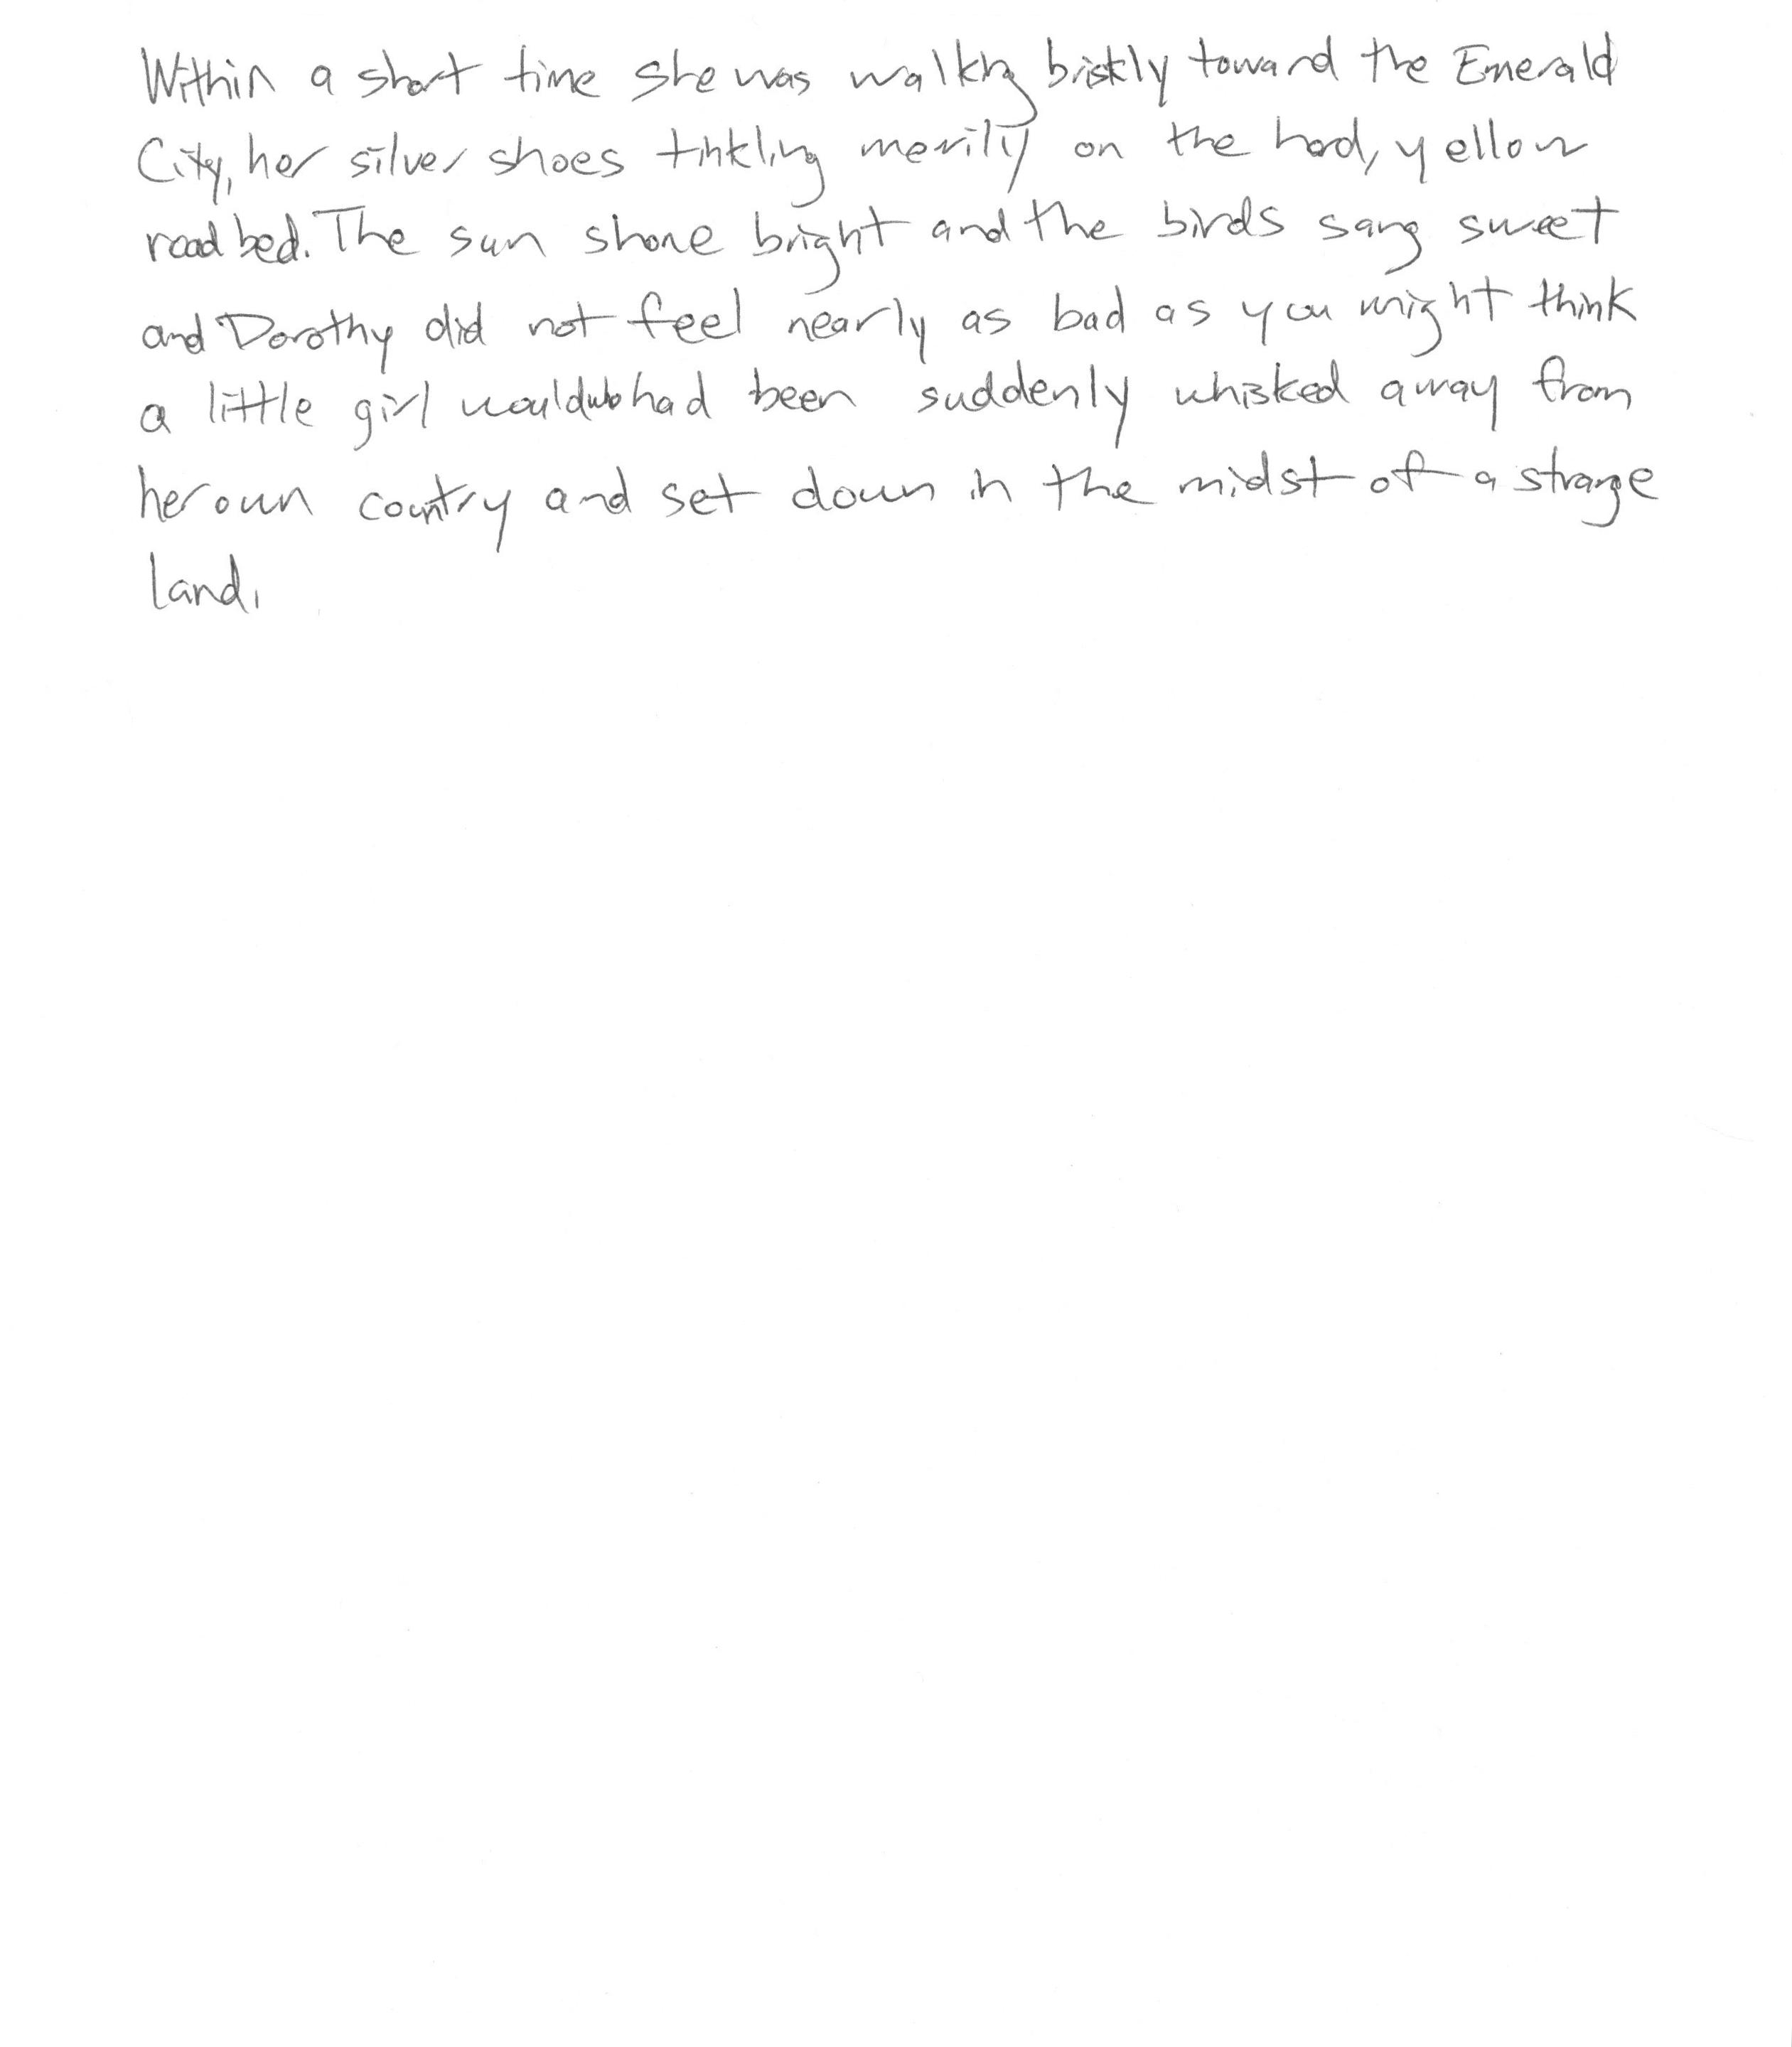 Within a short time she was walking briskly toward the Emerald
City, her silver shoes tinkling merrily on the hard, yellow
road bed. The sun shone bright and the birds sang sweet
and Dorothy did not feel nearly as bad as you might think
a little girl would who had been suddenly whisked away from
her own country and set down in the midst of a strange
land.